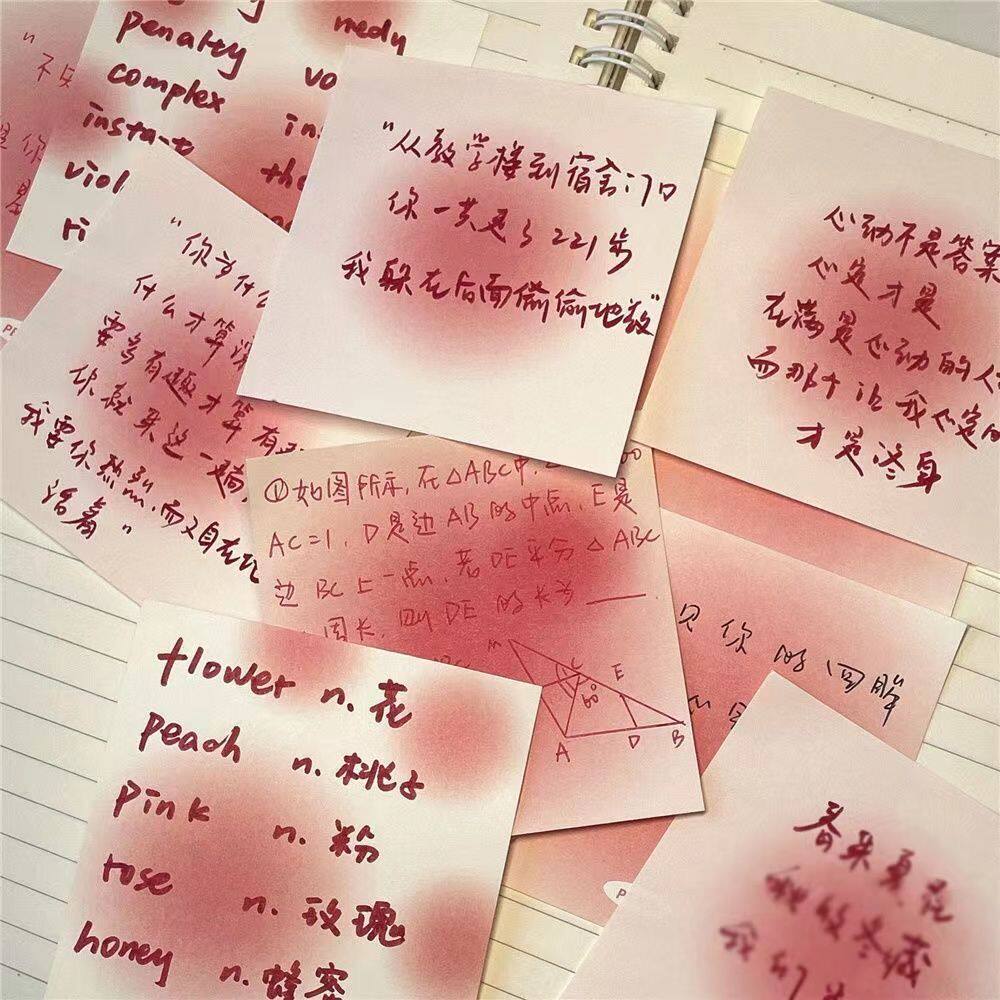 penalty
complex
instant
nedy
"从教学楼到宿舍门口
你一共走了221步
我躲在后面偷偷地数"
心动不是答案
心定才是
在满是心动的人
而那个让我心定的
才是终身
"你为什么
什么才算深
要多有趣才算有
你就来这一趟
我要你热烈,而又自在地
活着"
①如图所示,在△ABC中,
AC=1,D是边AB的中点,E是
边BC上一点,若DE平分△ABC
周长,则DE的长为
M
C
E
60°
A
D
B
见你的回眸
flower n.花
peach n.桃子
pink n.粉
rose n.玫瑰
honey n.蜂蜜
春来夏花
秋收冬藏
我们